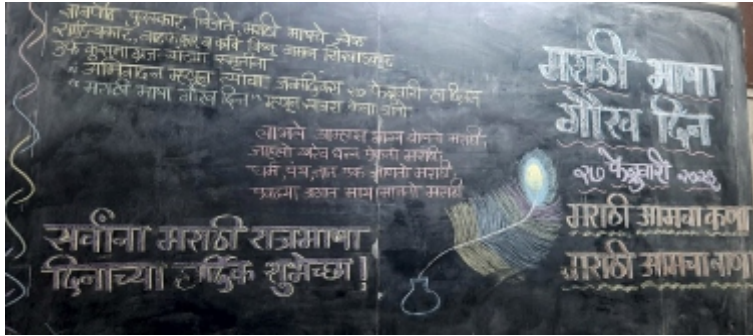 ज्ञानपीठ पुरस्कार विजेते, मराठी भाषेचे श्रेष्ठ
साहित्यकार, नाटककार व कवि विष्णू वामन शिरवाडकर
उर्फ कुसुमाग्रज यांच्या स्मृतीला
अभिवादन म्हणून त्यांचा जन्मदिवस २७ फेब्रुवारी हा दिवस
"मराठी भाषा गौरव दिन" म्हणून साजरा केला जातो
लाभले आम्हास भाग्य बोलतो मराठी
जाहलो खरेच धन्य ऐकतो मराठी
धर्म, पंथ, जात एक जाणतो मराठी
एवढ्या जगात माय मानतो मराठी
सर्वांना मराठी राजभाषा
दिनाच्या हार्दिक शुभेच्छा!
मराठी भाषा
गौरव दिन
२७ फेब्रुवारी
मराठी आमचा कणा
मराठी आमचा बाणा